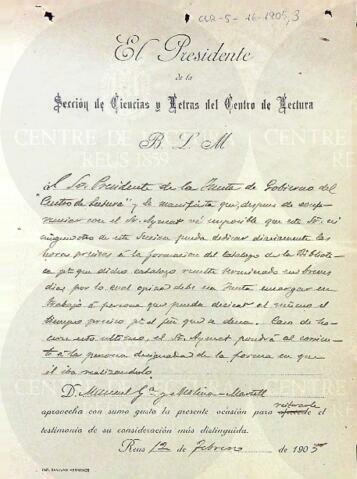 CLR-5-16-1905,3
El Presidente
de la
Sección de Ciencias y Letras del Centro de Lectura
B. L. M.
CENTRE DE
REUS 1859
Al Sor Presidente de la Junta de Gobierno del
"Centro de Lectura" y le manifiesta que, despues de
con el Sr. Aymat vé imposible que este Sr. ni
de esta Seccion pueda dedicar diariamente las
horas precisas á la formacion del Catalogo de la Bibliote-
ca pª que dicho catalogo resulte terminado en breves
dias por lo cual opina debe esa Junta encargar
trabajo á persona que pueda dedicar al mismo el
tiempo preciso pª el fin que se desea. Caso de ha-
cerse esto ultimo, el Sr. Aymat pondrá al corrien-
te á la persona designada de la forma en que
él iba realizandolo.
D. Manuel Gª y Molina-Martell
aprovecha con sumo gusto la presente ocasión para reiterarle
el
testimonio de su consideración más distinguida.
Reus 12 de Febrero de 1905